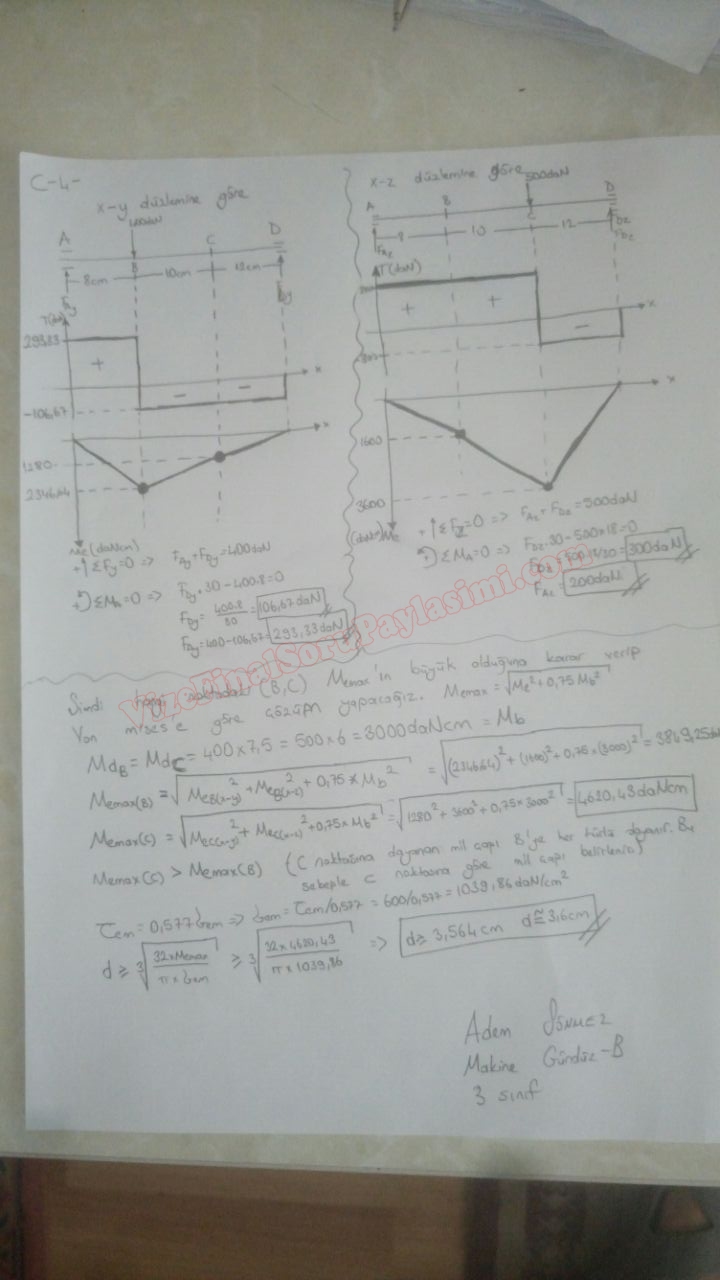 C-4-
x-y düzlemine göre
400daN
A
B
C
D
8cm
10cm
12cm
FAy
FDy
T(daN)
293,33
+
- -
x
-106,67
x
1280
2346,64
Me(daNcm)
+↑ΣFy=0 => FAy+FDy=400daN
+↻ΣMA=0 => FDy.30-400.8=0
FDy= 400.8/30 = 106,67daN
FAy=400-106,67=293,33daN
x-z düzlemine göre
500daN
A
B
C
D
8
10
12
FAz
FDz
T(daN)
+ +
-
x
x
1600
3600
(daNcm)Me
+↑ΣFz=0 => FAz+FDz=500daN
+↻ΣMA=0 => FDz.30-500×18=0
FDz=500.18/30=300daN
FAz=200daN
VizeFinalSoruPaylasimi.com
Şimdi hangi noktadaki (B,C) Memax'in büyük olduğuna karar verip
Von mises'e göre çözüm yapacağız. Memax=√Me²+0,75Mb²
MdB=MdC=400×7,5=500×6=3000daNcm=Mb
Memax(B)=√MeB(x-y)²+MeB(x-z)²+0,75×Mb² =√(2346,64)²+(1600)²+0,75×(3000)² =3849,25da
Memax(C)=√MeC(x-y)²+MeC(x-z)²+0,75×Mb² =√1280²+3600²+0,75×3000² =4620,43daNcm
Memax(C) > Memax(B) (C noktasına dayanan mil çapı B'ye her türlü dayanır. Bu
sebeple C noktasına göre mil çapı belirlenir)
τem=0,577σem=>σem=τem/0,577=600/0,577=1039,86daN/cm²
d≥∛32×Memax/π×σem ≥∛32×4620,43/π×1039,86 => d≥3,564cm d≅3,6cm
Adem SÖNMEZ
Makine Gündüz-B
3 sınıf